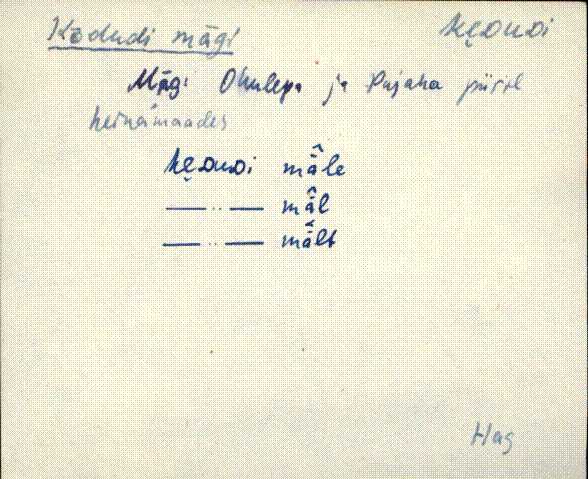 Kõdudi mägi kẹᴅuᴅi
Mägi Ohulepa ja Pajaka piiril
heinamaades
kẹᴅuᴅi mä̂le
—— ·· —— mä̂l
—— ·· —— mä̂lt
Hag